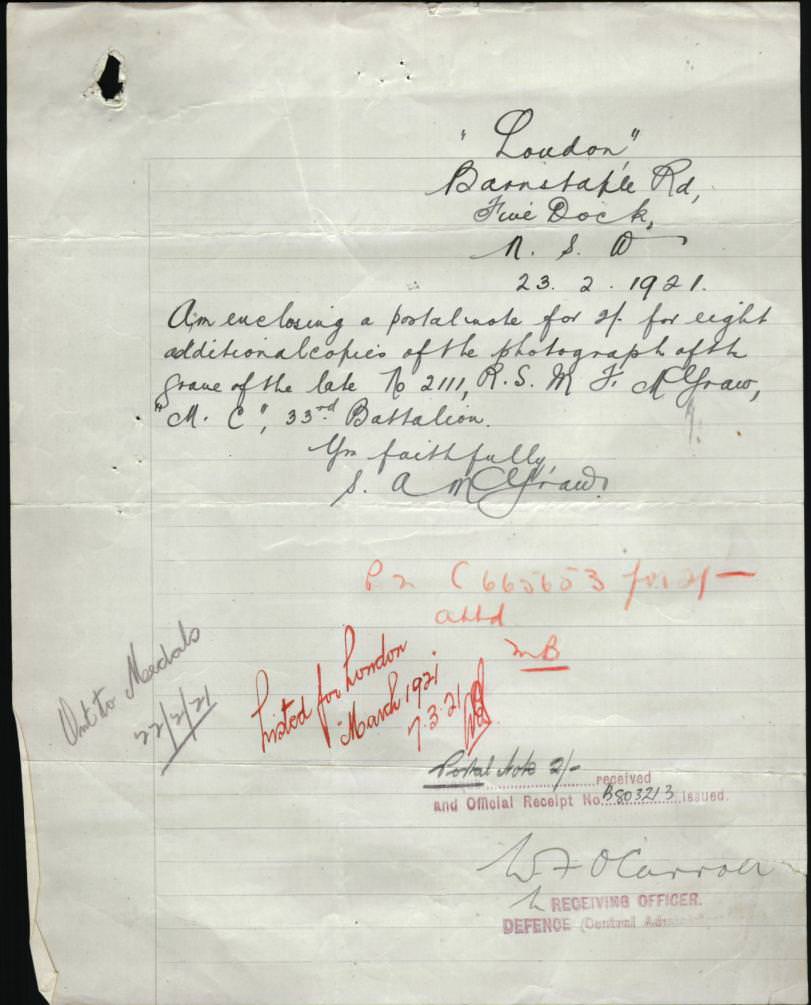 "Loudon",
Barnstaple Rd,
Five Dock,
N. S. W
23. 2. 1921.
Am enclosing a postal note for 2/- for eight
additional copies of the photograph of the
grave of the late No 2111, R. S. M F. McGraw,
"M. C", 33rd Battalion.
Yrs faithfully,
S. A McGraw.
P.N C 665653 for 2/-
attd
MB
Listed for London
March 1921
7.3.21
Medals
22/2/21
Postal Note 2/- received
and Official Receipt No. B803213 issued.
W F O'Carroll
RECEIVING OFFICER.
DEFENCE (Central